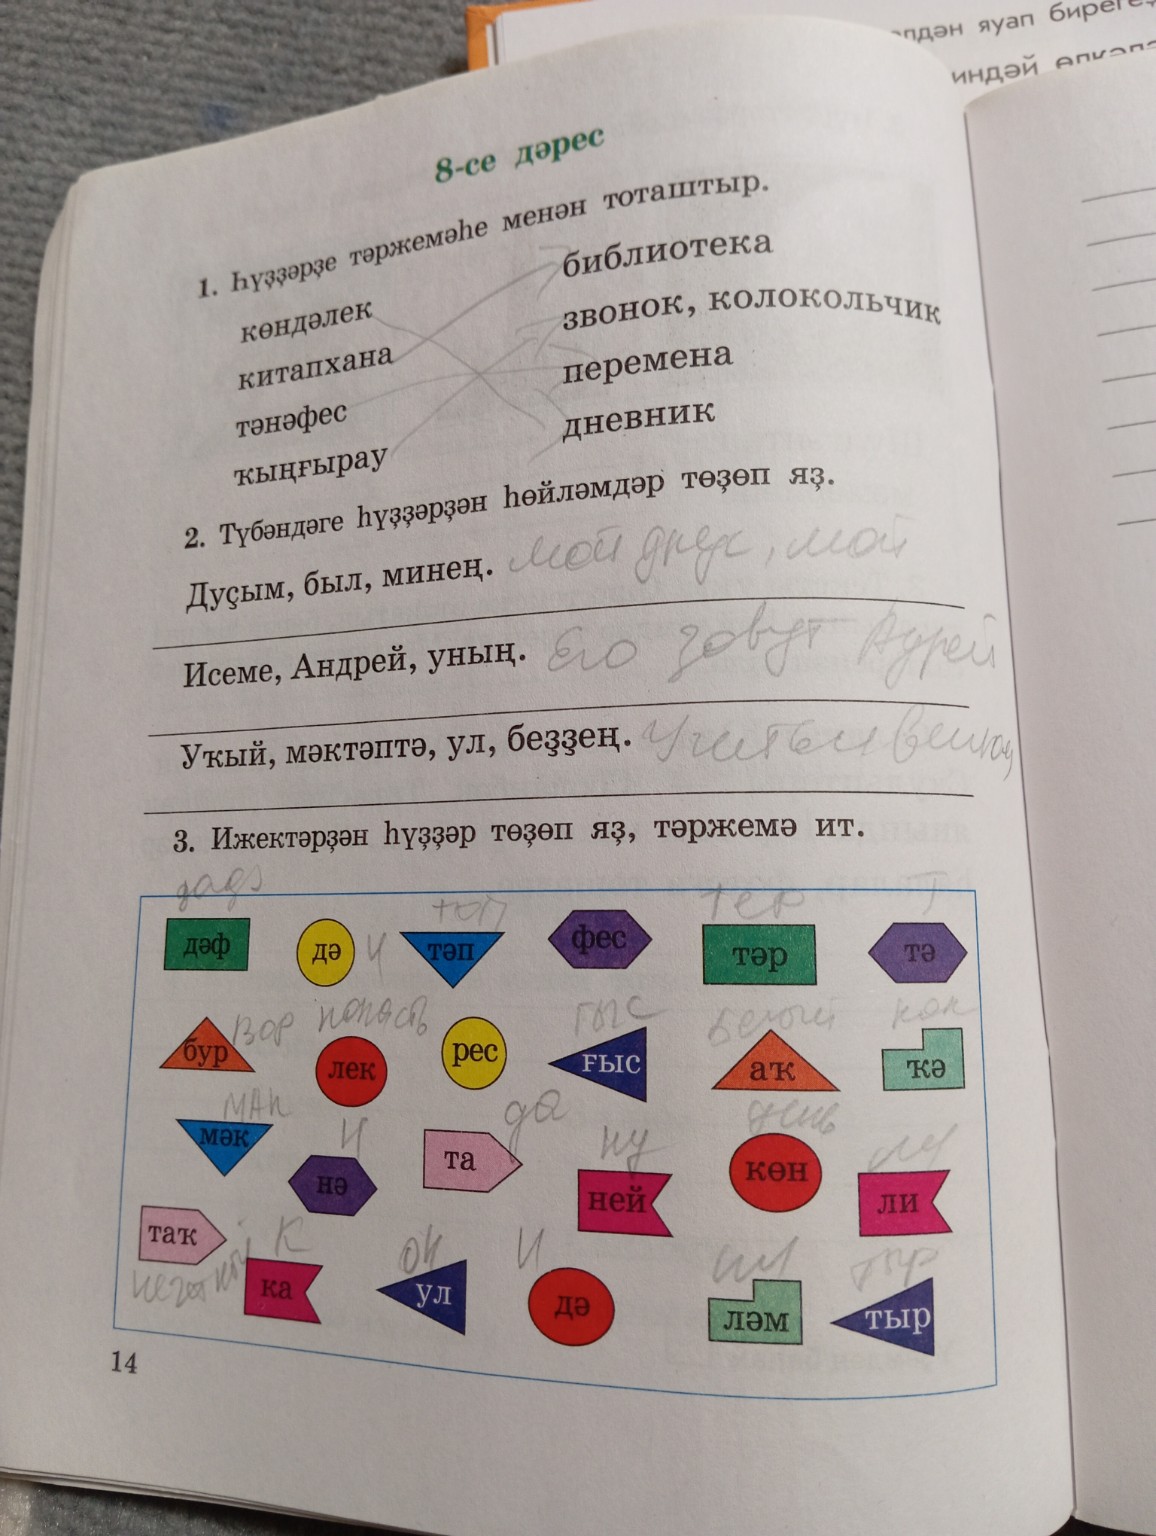 лдән яуап бирегеҙ
индәй
8-се дәрес
1. Һүҙҙәрҙе тәржемәһе менән тоташтыр.
көндәлек
китапхана
тәнәфес
ҡыңғырау
библиотека
звонок, колокольчик
перемена
дневник
2. Түбәндәге һүҙҙәрҙән һөйләмдәр төҙөп яҙ.
Дуҫым, был, минең. мой друг, мой
Исеме, Андрей, уның. Его зовут Андрей
Уҡый, мәктәптә, ул, беҙҙең.
3. Ижектәрҙән һүҙҙәр төҙөп яҙ, тәржемә ит.
тэп тер т
дәф дә и тәп фес тәр тә
вор напасть гыс белый как
бур лек рес ғыс аҡ ҡә
мак и да ну день ли
мәк нә та ней көн ли
таҡ ка ул дә ләм тыр
нечеткий к он и тыр
14